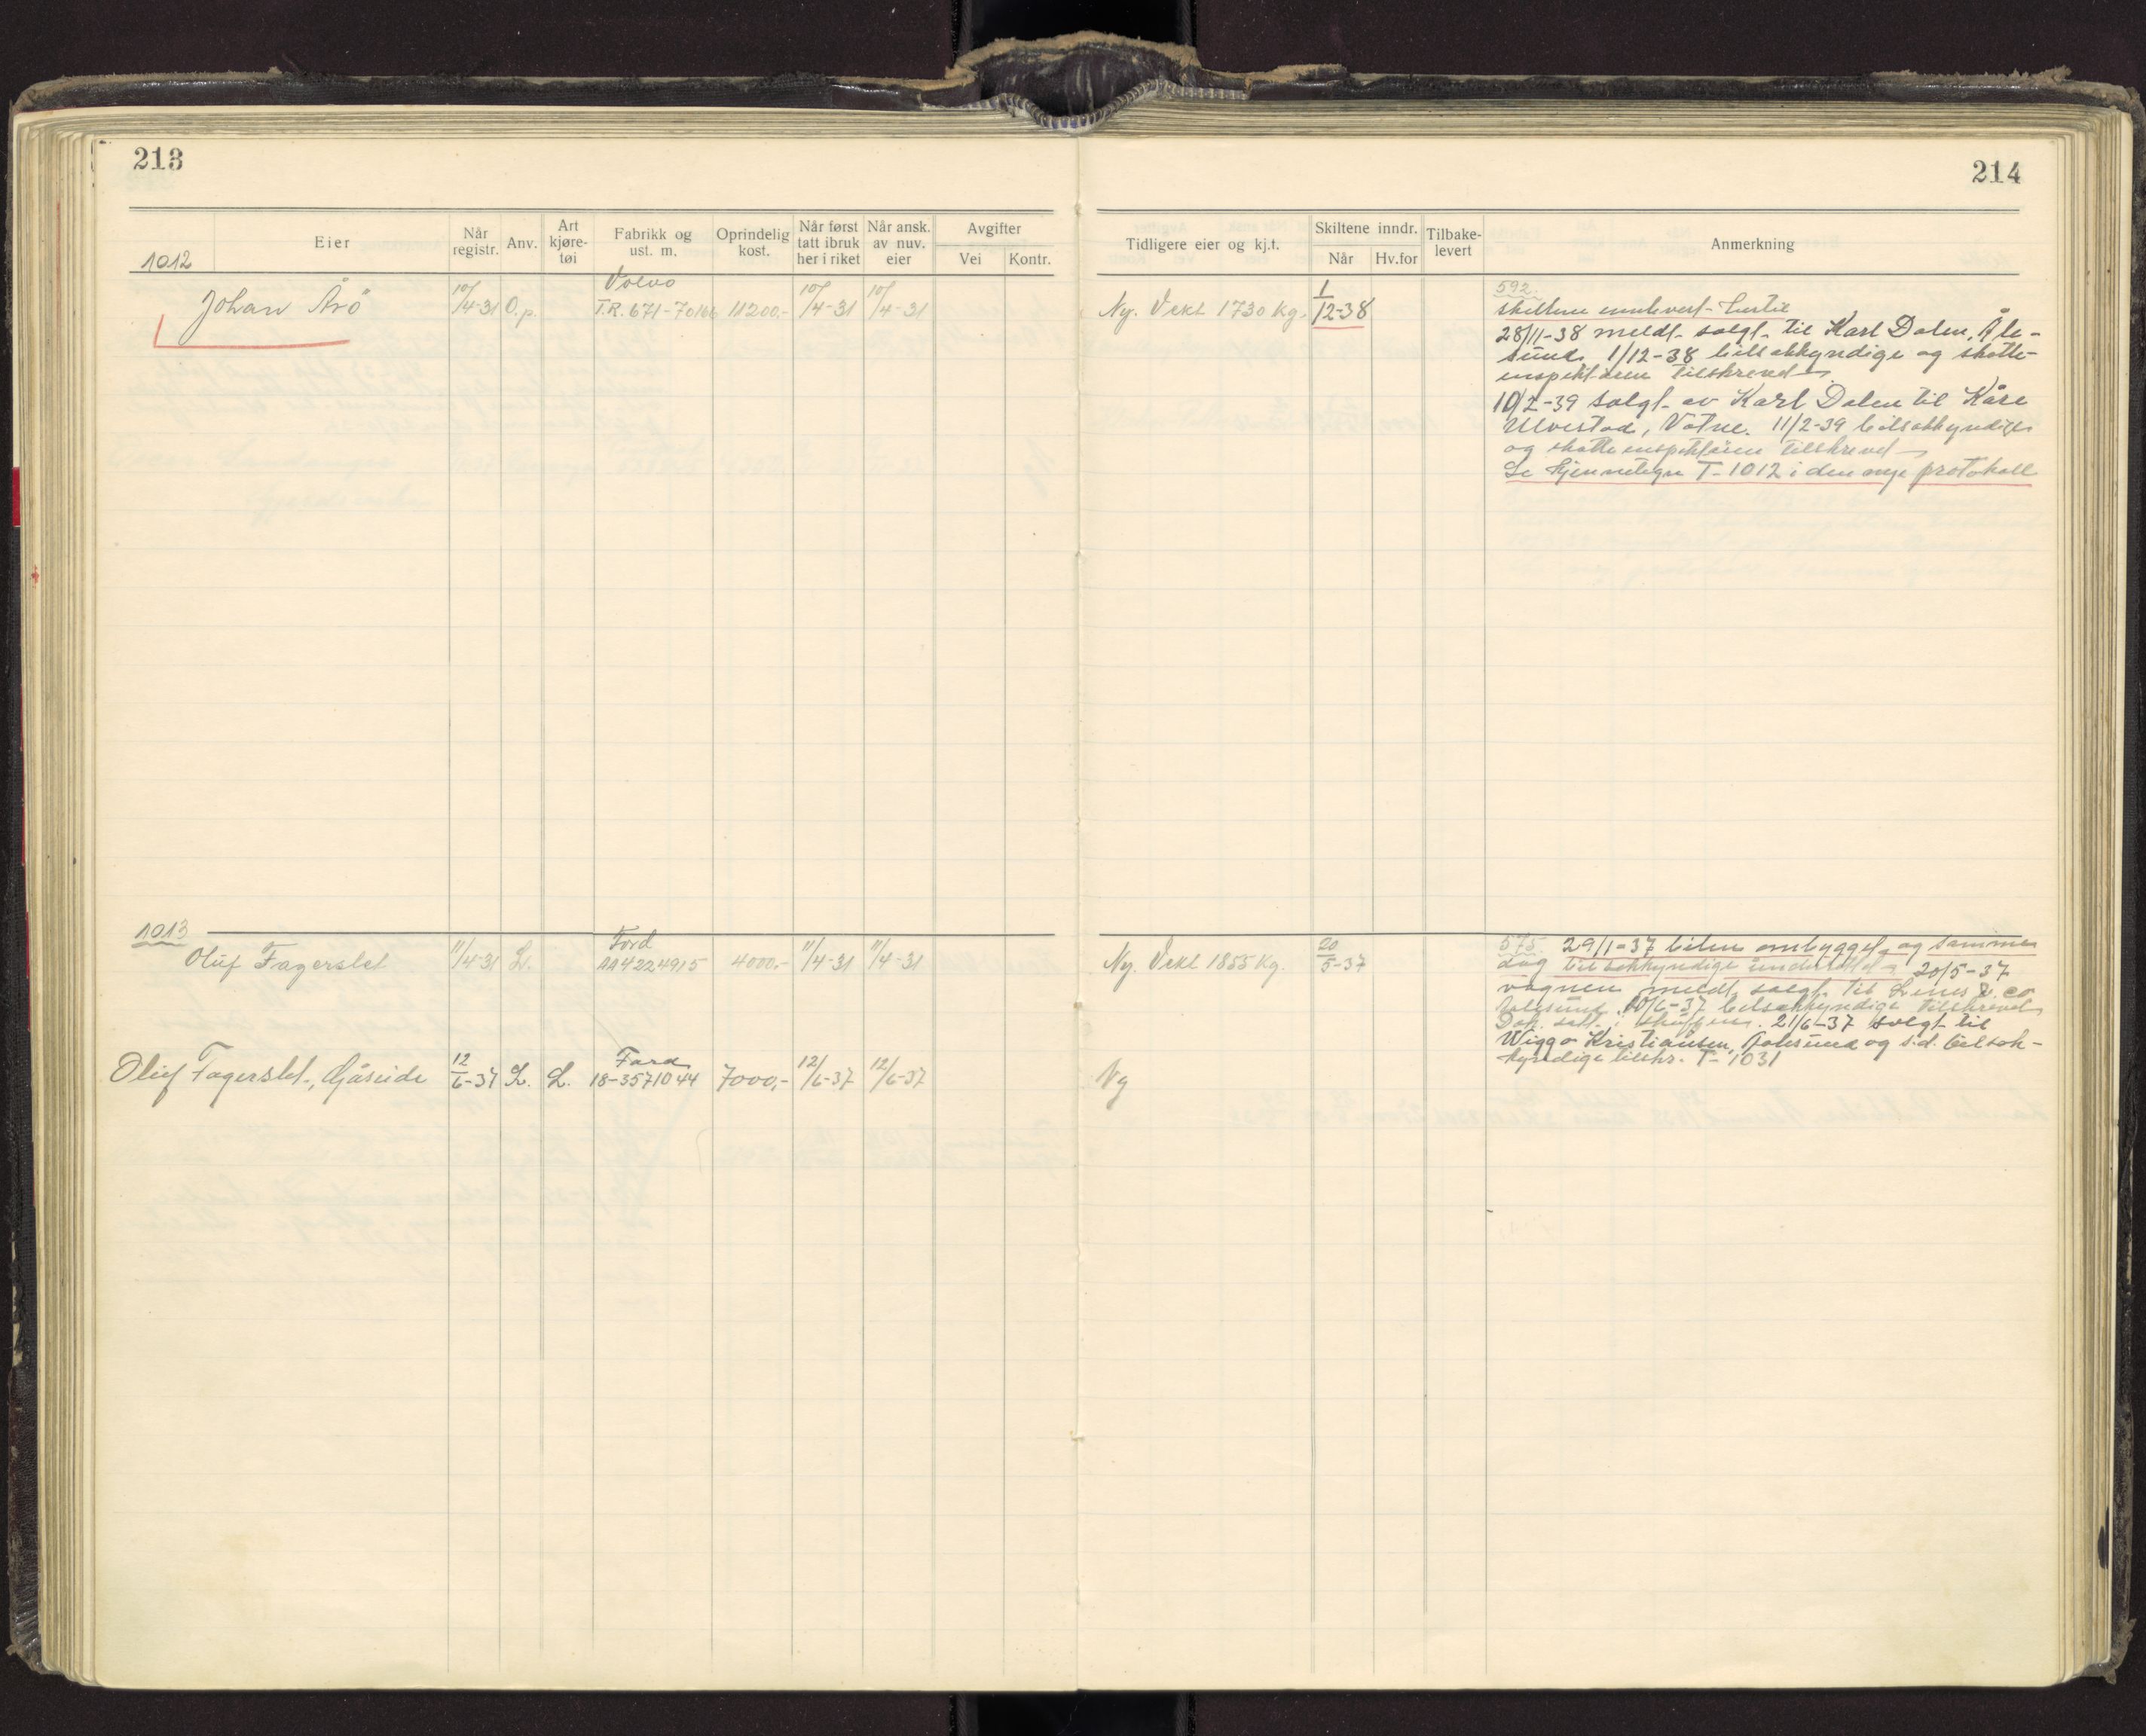 213
Eier
Når registr.
Anv.
Art kjøre-tøi
Fabrikk og ust. m.
Oprindelig kost.
Når først tatt ibruk her i riket
Når ansk. av nuv. eier
Avgifter
Vei
Kontr.
1012
Johan Årö 10/4-31 O.p. Volvo T.R. 671-70166 11200.- 10/4-31 10/4-31
1013
Oluf Fagerslet 11/4-31 L. Ford AA4224915 4000.- 11/4-31 11/4-31
Oluf Fagerslet, Gåseide 12/6-37 L. L. Ford 18-3571044 7000,- 12/6-37 12/6-37
214
Tidligere eier og kj.t.
Skiltene inndr.
Når
Hv.for
Tilbake-levert
Anmerkning
Ny. Vekt 1730 Kg. 1/12-38
592.
skiltene innlevert
28/11-38 meldt solgt til Karl Dalen, Åle-
sund. 1/12-38 bilsakkyndige og skatte-
inspektøren tilskrevet
10/2-39 solgt av Karl Dalen til Kåre
Ulvestad, Vatne. 11/2-39 bilsakkyndige
og skatteinspektøren tilskrevet
Se Kjennetegn T-1012 i den nye protokoll
Ny. Vekt 1855 Kg. 20/5-37
575. 29/1-37 bilen ombygget og samme
dag bilsakkyndige underrettet 20/5-37
vognen meldt solgt til & co
Aalesund. 10/6-37 bilsakkyndige tilskrevet
Dok. satt i skuffen. 21/6-37 solgt til
Wiggo Kristiansen, Aalesund og s.d. bilsak-
kyndige tilskr. T-1031
Ny